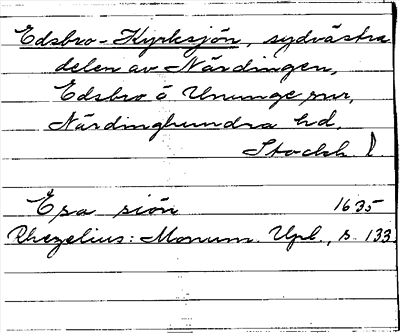 Edsbro-Kyrksjön, sydvästra
delen av Närdingen,
Edsbro o Ununge snr,
Närdinghundra hd,
Stockh. l.
Esa siön 1635
Rhezelius: Monum. Upl., s. 133